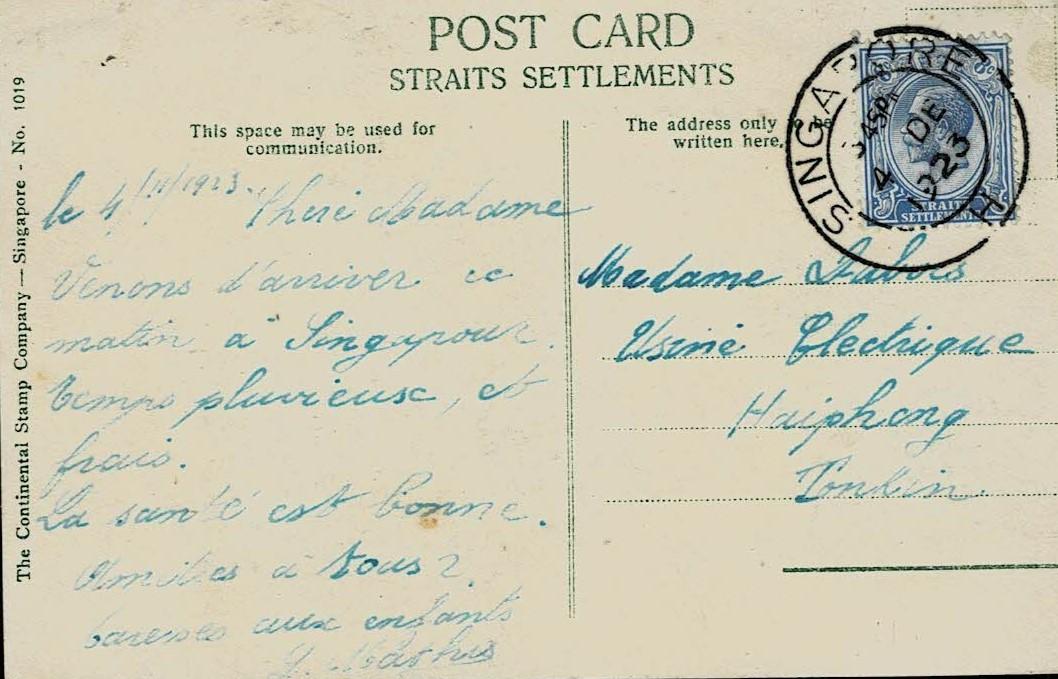 POST CARD
STRAITS SETTLEMENTS
This space may be used for
communication.
The address only to be
written here.
SINGAPORE
4 DE
1923
STRAITS
SETTLEMENTS
The Continental Stamp Company — Singapore - No. 1019
le 4/ /1923. Chère Madame
Venons d'arriver ce
matin à Singapour.
temps pluvieux, et
frais.
La santé est bonne.
Amitiés à tous 2
caresses aux enfants
Madame
Usine Electrique
Haiphong
Tonkin.